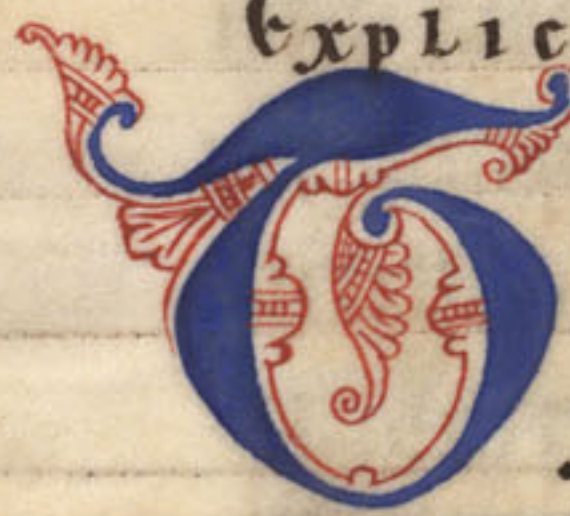 Explic
T